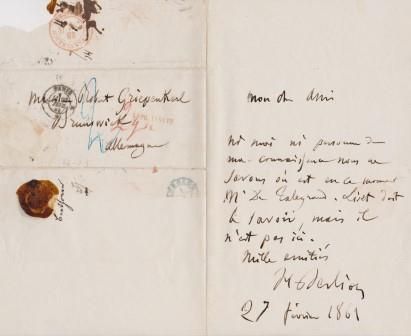 PARIS
Monsieur Robert Griepenkerl
Brunswick
Allemagne
mon cher Ami
ni moi ni personne de
ma connaissance nous ne
savons où est en ce moment
Mr De Sabegrand. Liszt doit
le savoir, mais il
n'est pas ici.
Mille amitiés
H Berlioz
27 février 1861